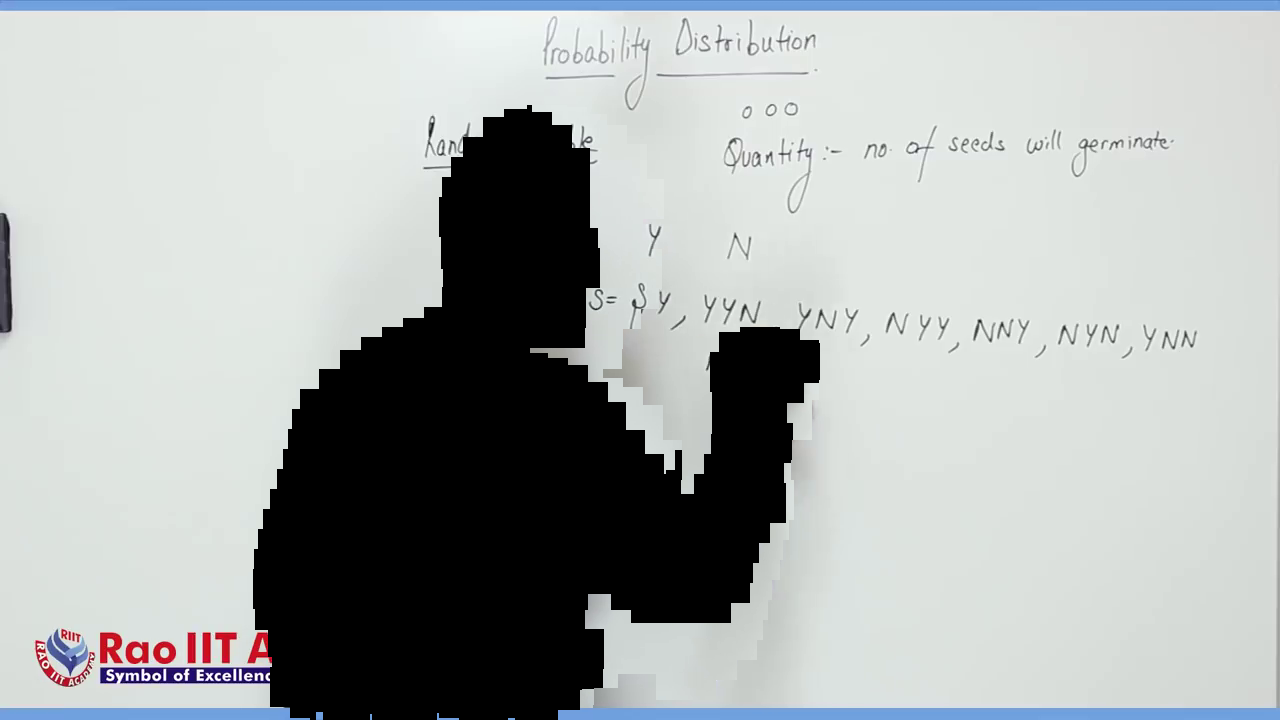 Probability Distribution
Quantity :- no. of seeds will germinate.
Y N
S= Y, YYN YNY, NYY, NNY, NYN, YNN
RIIT
RAO IIT ACADEMY
Rao IIT A
Symbol of Excellenc